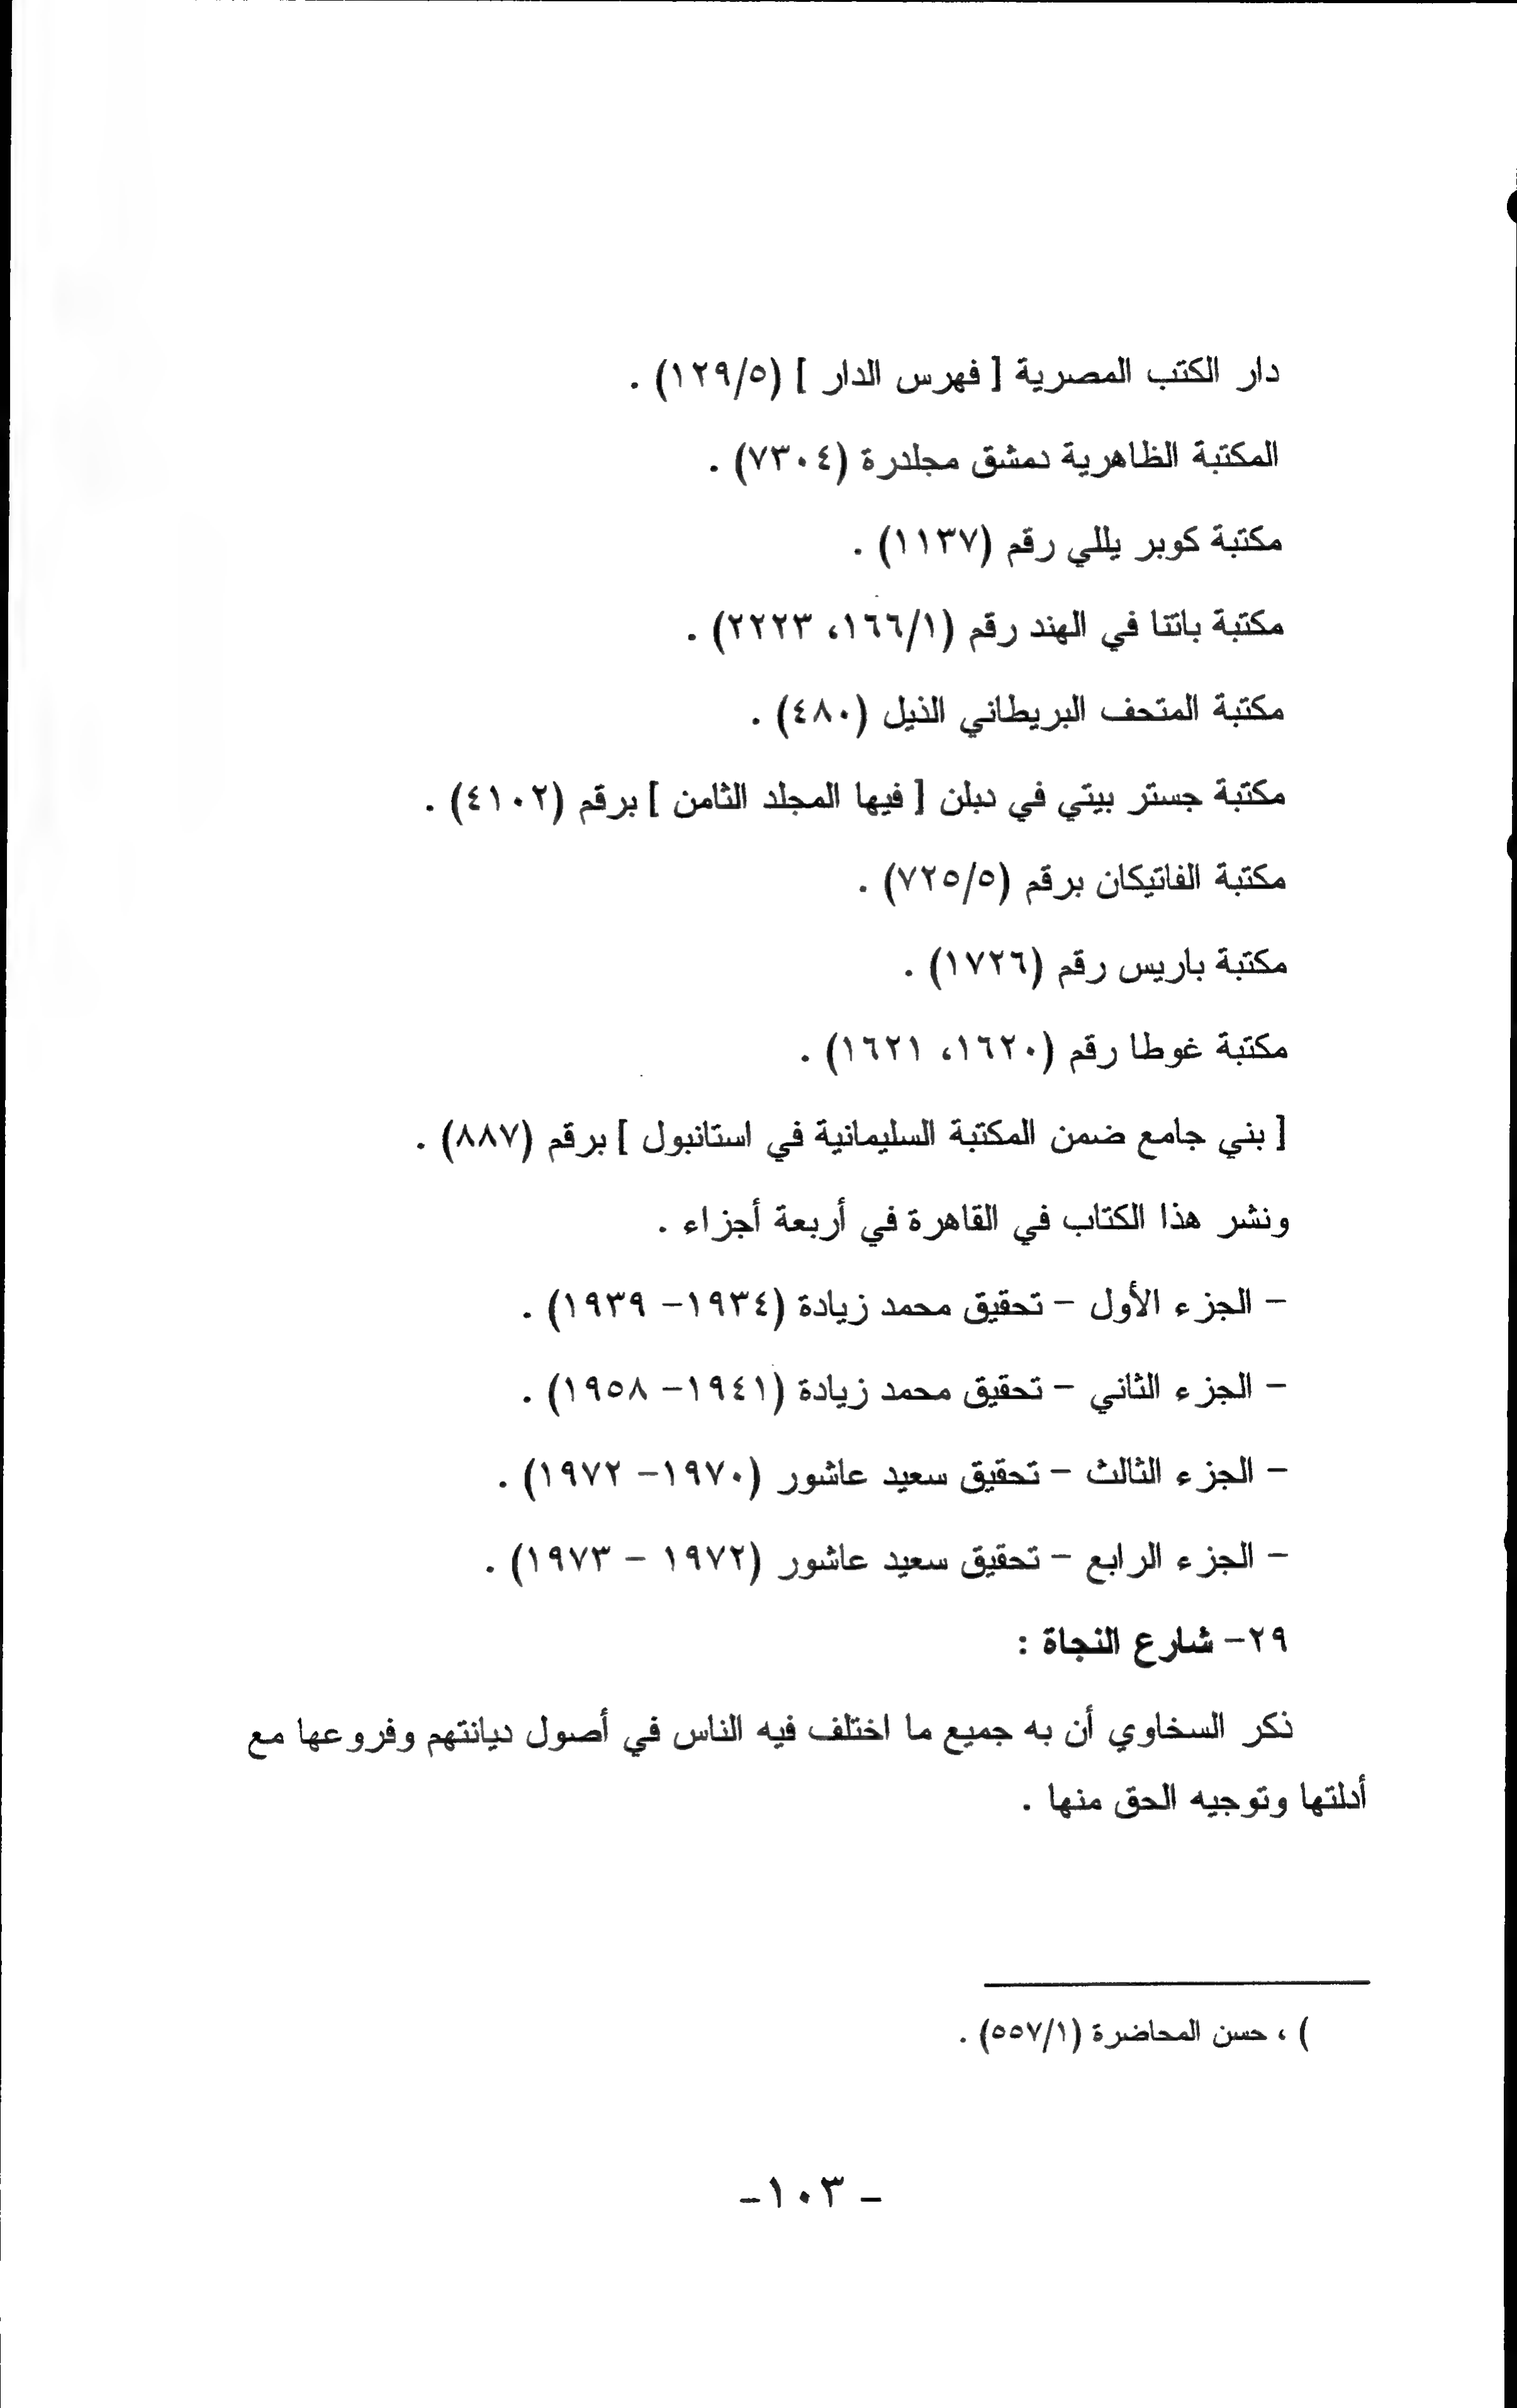 دار الكتب المصرية [ فهرس الدار ] (١٢٩/٥) .
المكتبة الظاهرية دمشق مجلدرة (٧٣٠٤) .
مكتبة كوبر يللي رقم (١١٣٧) .
مكتبة باتتا في الهند رقم (١٦٦/١، ٢٢٢٣) .
مكتبة المتحف البريطاني الذيل (٤٨٠) .
مكتبة جستر بيتي في دبلن [ فيها المجلد الثامن ] برقم (٤١٠٢) .
مكتبة الفاتيكان برقم (٧٢٥/٥) .
مكتبة باريس رقم (١٧٢٦) .
مكتبة غوطا رقم (١٦٢٠، ١٦٢١) .
[ بني جامع ضمن المكتبة السليمانية في استانبول ] برقم (٨٨٧) .
ونشر هذا الكتاب في القاهرة في أربعة أجزاء .
– الجزء الأول – تحقيق محمد زيادة (١٩٣٤– ١٩٣٩) .
– الجزء الثاني – تحقيق محمد زيادة (١٩٤١– ١٩٥٨) .
– الجزء الثالث – تحقيق سعيد عاشور (١٩٧٠– ١٩٧٢) .
– الجزء الرابع – تحقيق سعيد عاشور (١٩٧٢ – ١٩٧٣) .
٢٩– شارع النجاة :
ذكر السخاوي أن به جميع ما اختلف فيه الناس في أصول ديانتهم وفروعها مع
أدلتها وتوجيه الحق منها .
) ، حسن المحاضرة (٥٥٧/١) .
– ١٠٣–